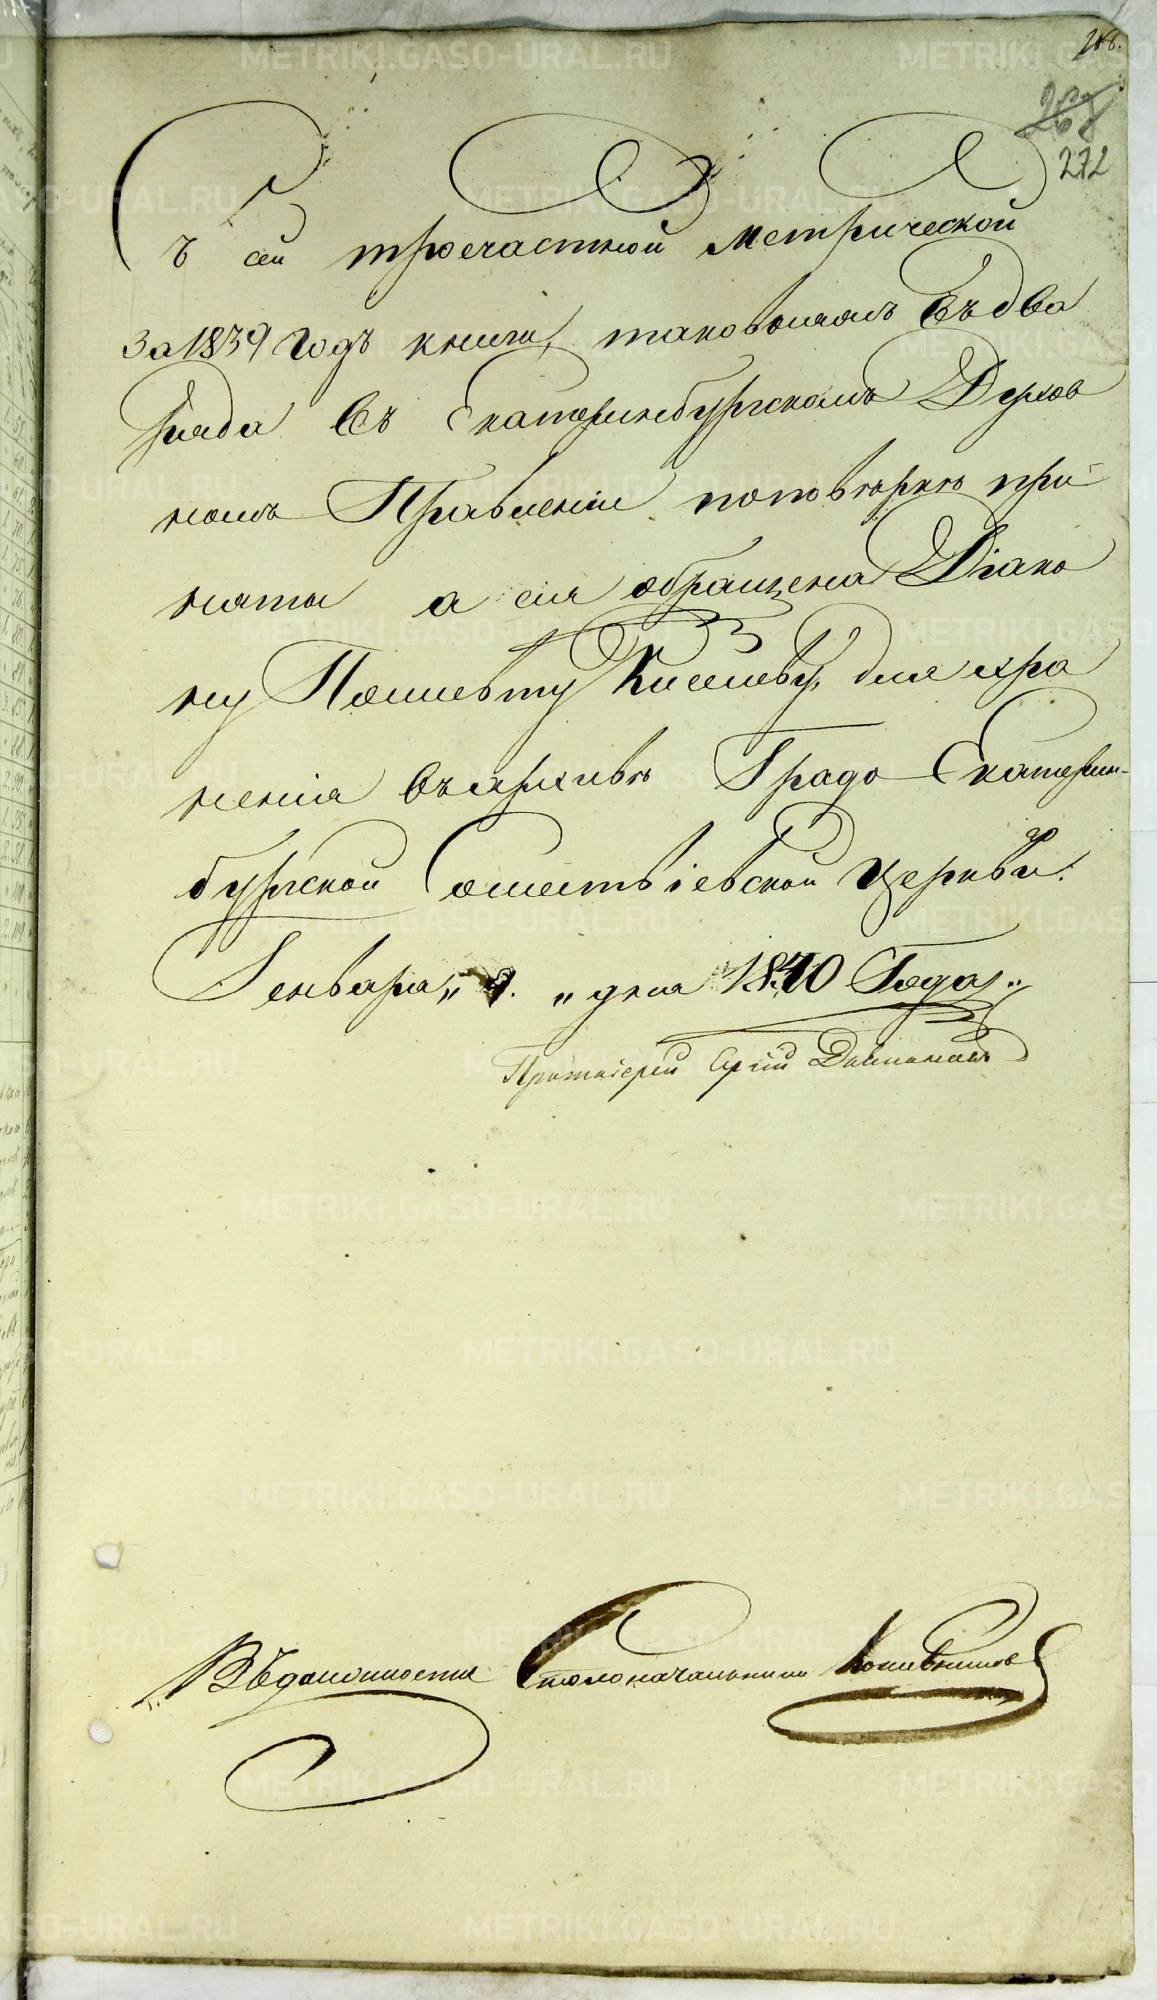 268
272
Съ сей троечастной Метрической
За 1839 Годъ книги, таковымъ въ два
ряда въ Екатеринбургскомъ Духов
номъ Правленіи поповѣркѣ при-
няты а сія обращена Діако
ну Ипполиту Киселеву, для хра
ненія въ архивѣ Градо Екатерин-
бургской Сошествіевской Церкви.
Генваря „ 9. „ дня 1840 Года„
Протоіерей Сергій
Въ должности Столоначальника
METRIKI.GASO-URAL.RU